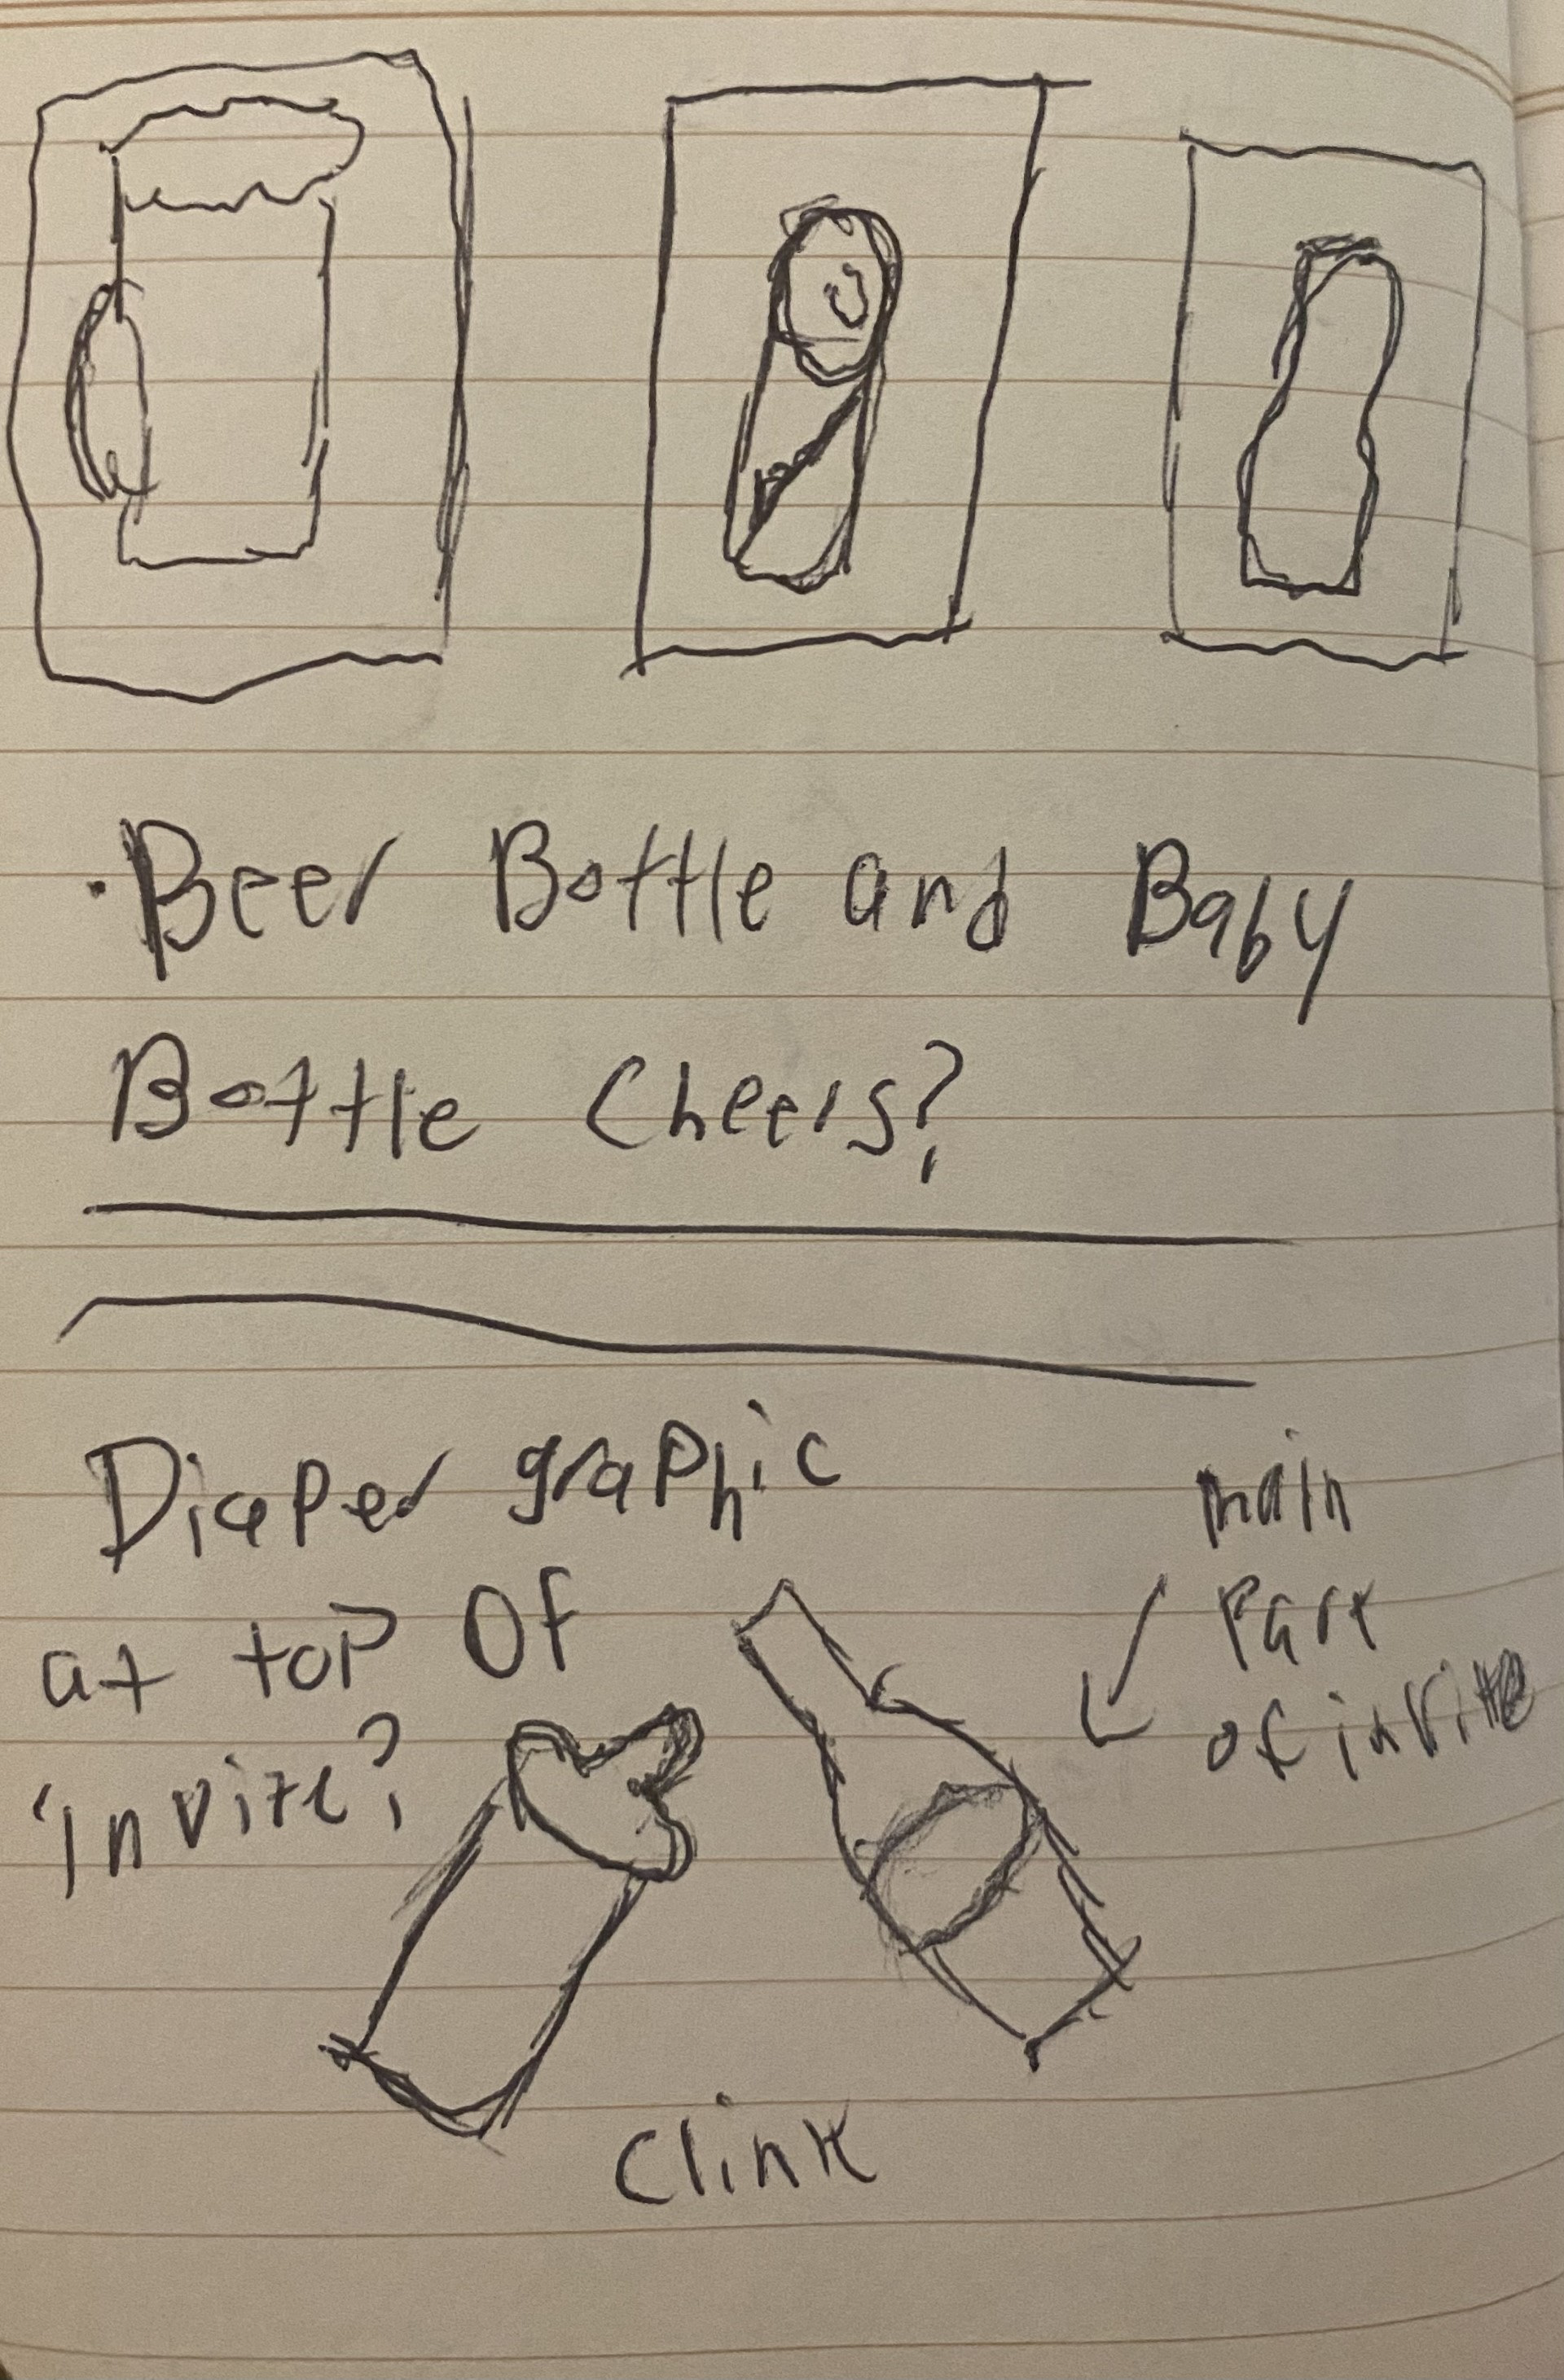 · Beer Bottle and Baby
Bottle Cheers?
Diaper graphic
at top of
invite?
main
part
of invite
Clink